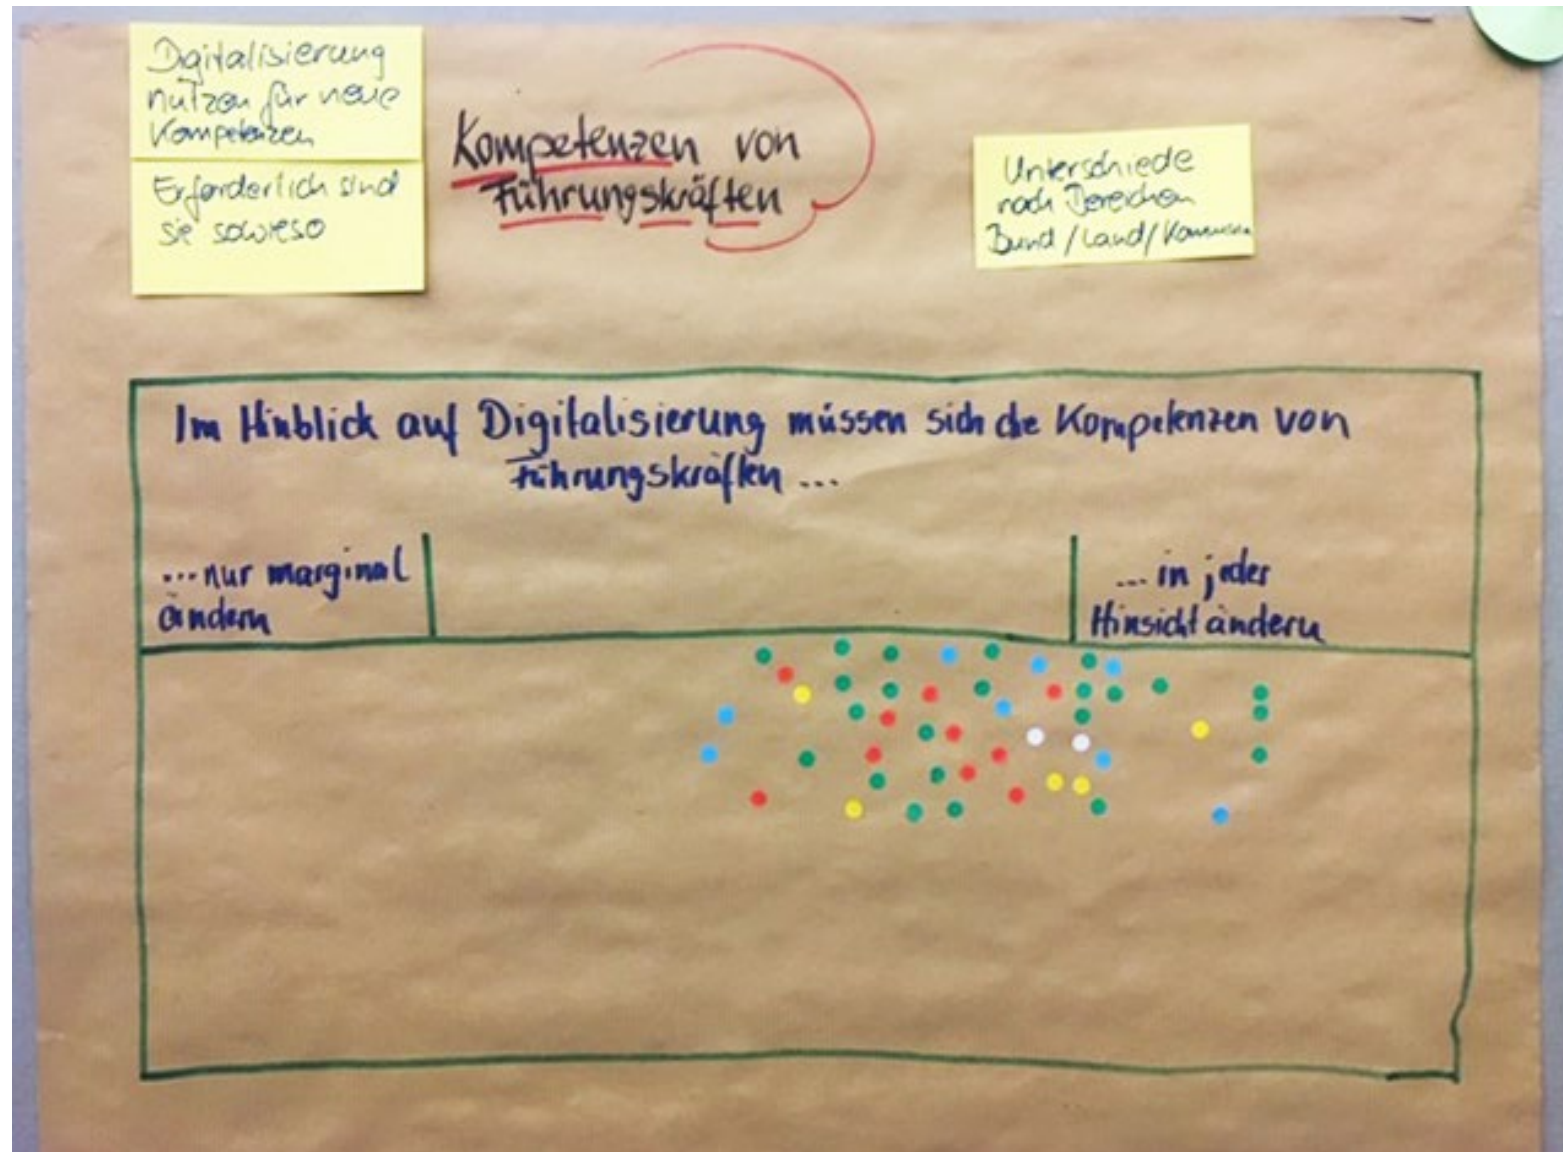 Digitalisierung
nutzen für neue
Kompetenzen
Erforderlich sind
sie sowieso
Kompetenzen von
Führungskräften
Unterschiede
nach Bereichen
Bund / Land / Kommunen
Im Hinblick auf Digitalisierung müssen sich die Kompetenzen von
Führungskräften ...
... nur marginal
ändern
... in jeder
Hinsicht ändern